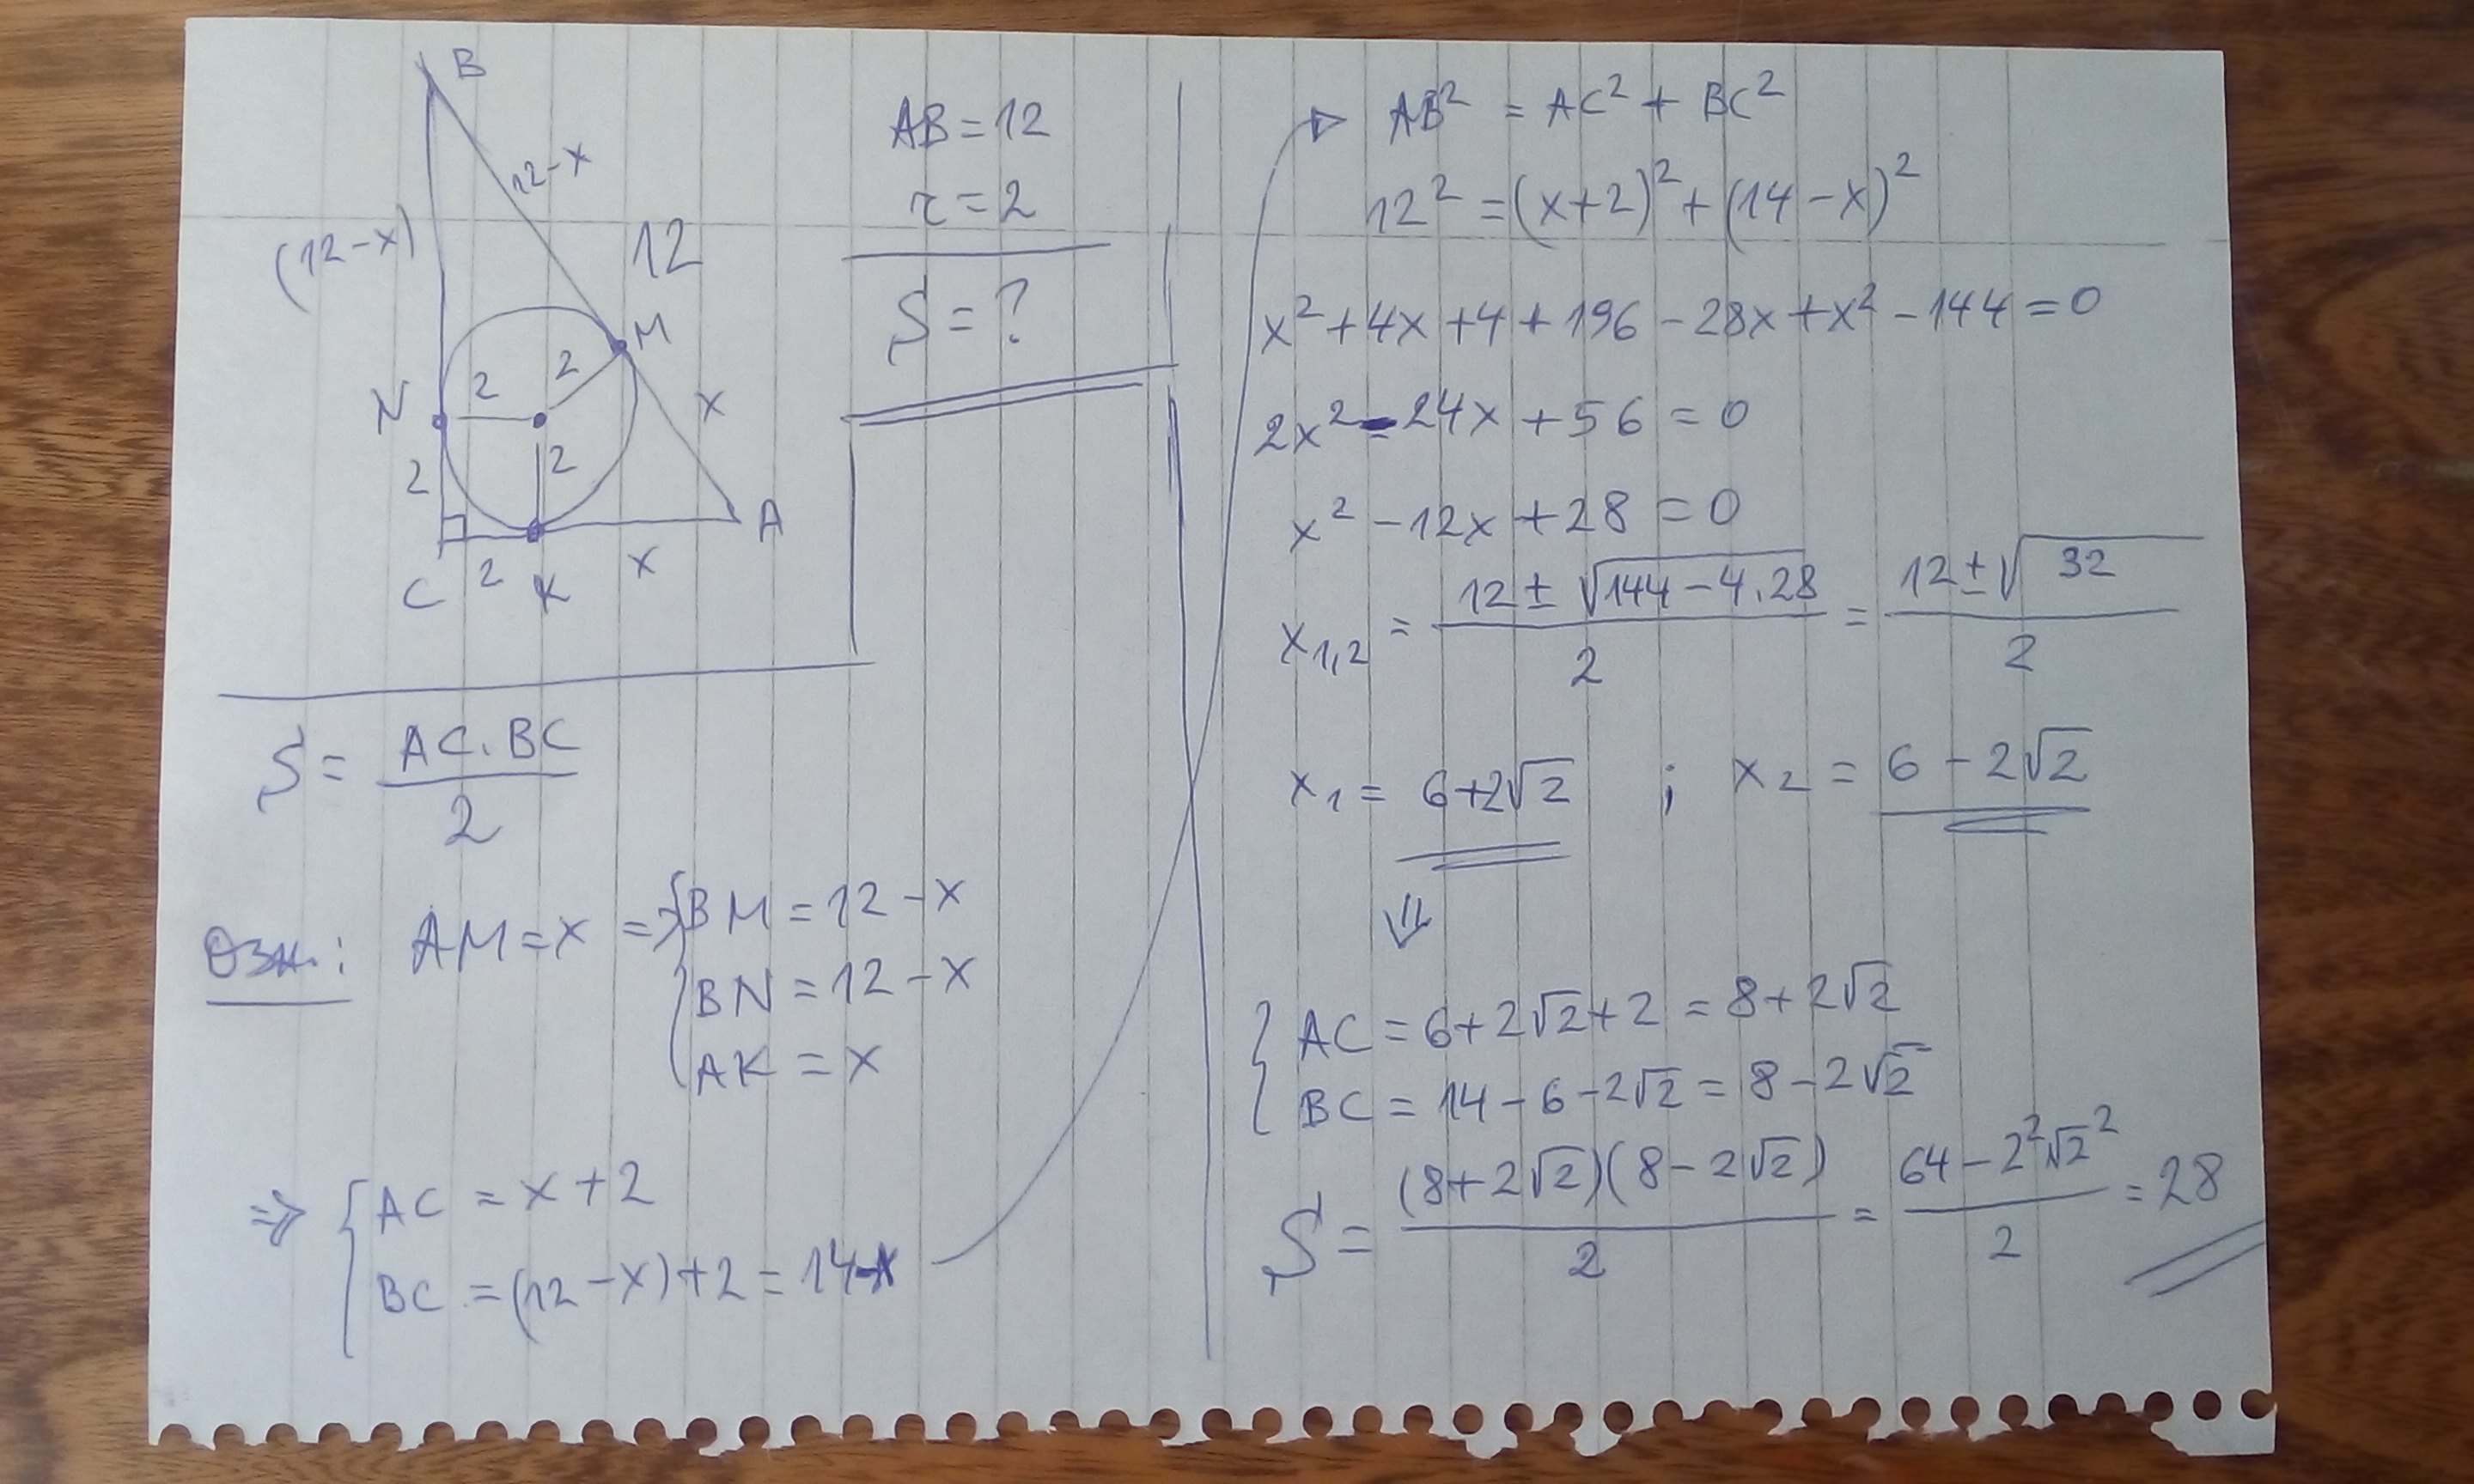 B
12-x
(12-x)
12
M
N
2
2
2
x
2
A
C
2
K
x
AB = 12
r = 2
S = ?
S = AC.BC / 2
Озн.: AM = x => { BM = 12 - x
BN = 12 - x
AK = x
=> { AC = x + 2
BC = (12 - x) + 2 = 14-x
AB² = AC² + BC²
12² = (x+2)² + (14 - x)²
x² + 4x + 4 + 196 - 28x + x² - 144 = 0
2x² - 24x + 56 = 0
x² - 12x + 28 = 0
x₁,₂ = (12 ± √(144 - 4.28)) / 2 = (12 ± √32) / 2
x₁ = 6+2√2 ; x₂ = 6 - 2√2
⇓
{ AC = 6+2√2+2 = 8+2√2
BC = 14 - 6 - 2√2 = 8 - 2√2
S = (8+2√2)(8-2√2) / 2 = (64 - 2²√2²) / 2 = 28